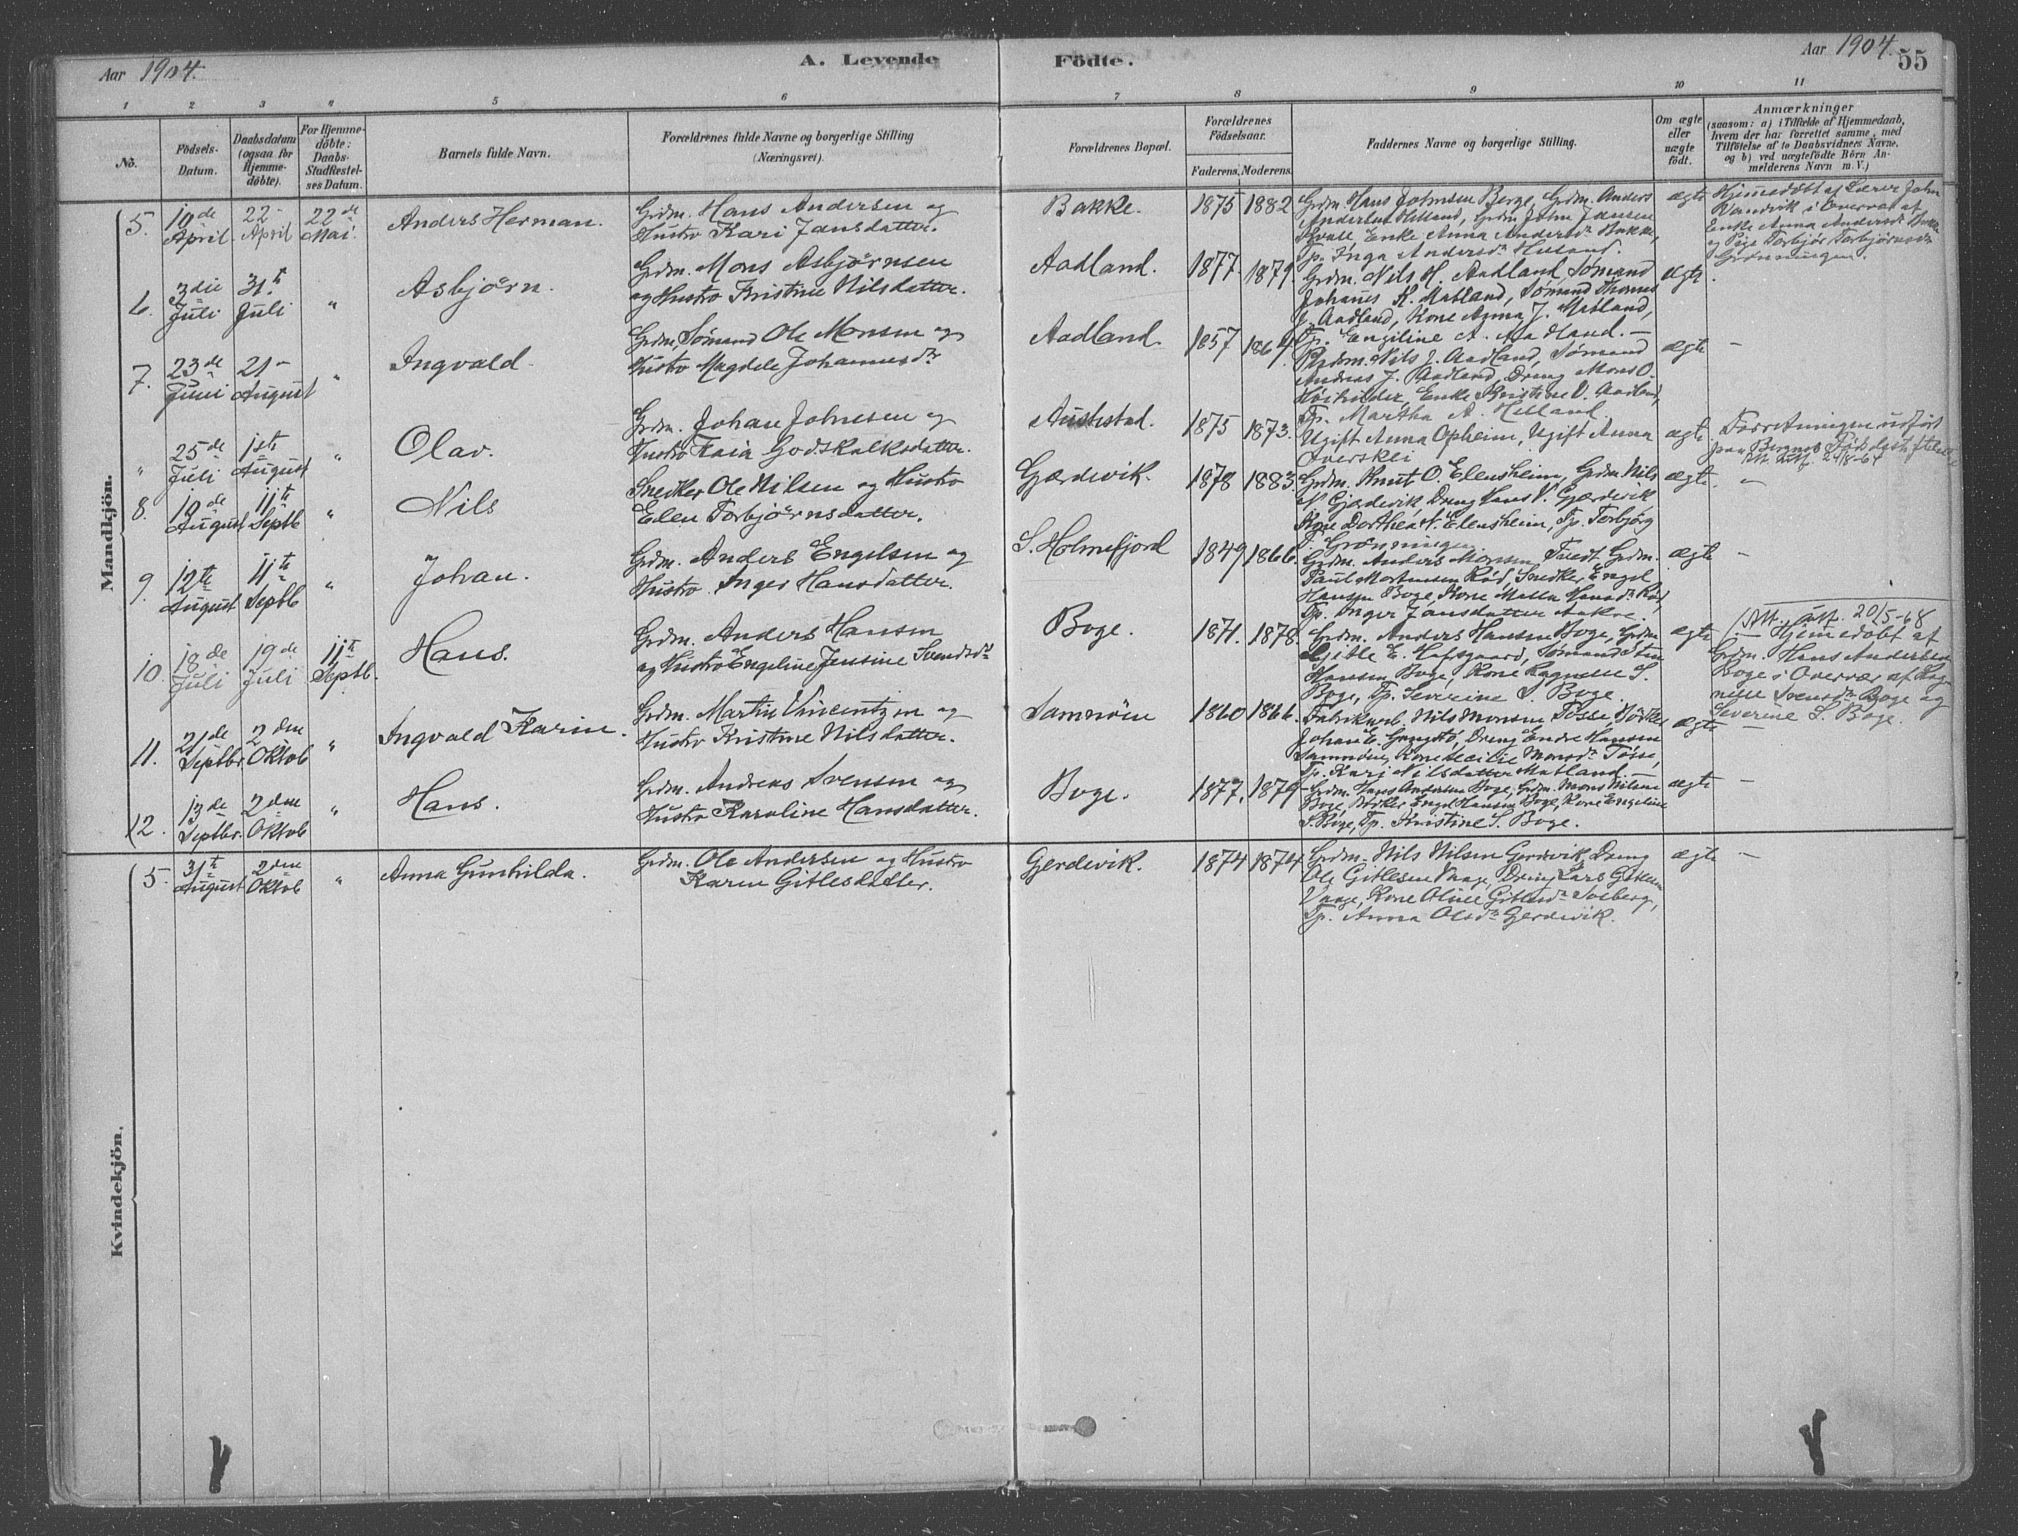 Aar 1904.
A. Levende
Födte.
Aar 1904.
55
1 2 3 4 5 6 7 8 9 10 11
No.
Födsels-
Datum.
Daabsdatum
(ogsaa for
Hjemme-
döbte).
For Hjemme-
döbte:
Daabs-
Stadfestel-
ses Datum.
Barnets fulde Navn.
Forældrenes fulde Navne og borgerlige Stilling
(Næringsvei).
Forældrenes Bopæl.
Forældrenes
Födselsaar.
Faderens. Moderens.
Faddernes Navne og borgerlige Stilling.
Om ægte
eller
uægte
födt.
Anmærkninger
(saasom: a) i Tilfælde af Hjemmedaab,
hvem der har forrettet samme, med
Tilföielse af to Daabsvidners Navne,
og b) ved uægtefödte Börn An-
melderens Navn m. V.)
Mandkjön.
5. 10de April. 22- April 22de Mai.
Anders Herman.
Grdm. Hans Andersen og
Hustro Kari Jansdatter.
Bakke.
1875 1882
Grdm. Hans Johnsen Berge, Grdm. Anders
Andersen Helland, Grdm. John Jansen
Enke Anna Andersdr Bakke,
Tp. Inga Andersdr Helland.
ægte
Hjemmedöbt af Lærer John
Vandvik i Overvær af
Enke Anna Andersdr Bakke
og Pige Torbjør Torbjørnsdr
Grønningen.
6. 3die Juli 31te Juli "
Asbjörn.
Grdm. Mons Asbjørnsen
og Hustro Kristine Nilsdatter.
Aadland.
1877 1879.
Grdm. Nils H. Aadland, Sømand
Johanes K. Matland, Sømand Thomas
J. Aadland, Kone Anna J. Matland,
Tp. Engiline A. Aadland.-
ægte
7. 23de Juni 21- August "
Ingvald.
Grdm, Sömand Ole Monsen og
Hustro Magdele Johannesdr
Aadland.
1857 1864.
Grdm. Nils J. Aadland, Sømand
Andreas J. Aadland, Dreng Mons O.
Enke Kristine O. Aadland,
Tp. Martha A. Helland.
ægte -
" 25de Juli 1ste August "
Olav.
Grdm. Johan Johnsen og
Hustro Kaia Godskalksdatter.
1875 1873.
Ugift Anna Opheim, Ugift Anna
Overskei
ægte
Forretningen udfört
paa Bergens
Att. utst. 24/8-64
8. 19de August 11te Septb "
Nils
Snedker Ole Nilsen og Hustro
Elen Torbjørnsdatter.
Gjærdevik.
1878 1883
Grdm. Knut O. Elensheim, Grdm. Nils
N. Gjærdevik, Dreng Hans N. Gjærdevik
Kone Dorthea N. Elensheim, Tp. Torbjørg
T. Grønningen
ægte -
9. 12te August 11te Septb "
Johan.
Grdm. Anders Engelsen og
Hustro Inger Hansdatter.
S. Holmefjord
1849 1866.
Grdm. Anders Monsen Tveit, Grdm.
Paul Mortensen Röd, Snedker Engel
Hansen Boge, Kone Malla Hansdr Röd,
Tp. Inger Jansdatter Aakre.
ægte -
10. 18de Juli 19de Juli 11te Septb.
Hans.
Grdm. Anders Hansen
og Hustro Engeline Jensine Svendsdr
Boge.
1871. 1878.
Grdm. Anders Hansen Boge, Grdm
Gjitle E. Hafsgaard, Sømand
Hansen Boge, Kone Ragnese S.
Boge, Tp. Severine S. Boge.
ægte
(Att. utst. 20/5-68
- Hjemmedöbt af
Grdm. Hans Andersen
Boge i Overvær af Rag-
nese Svensdr Boge og
Severine S. Boge.
11. 21de Septbr. 2den Oktob "
Ingvald Karin.
Grdm. Martin Vincentzen og
Hustro Kristine Nilsdatter.
Samnöen
1860 1866.
Fabrikarb. Nils Monsen Tösse, Bödker
Johan E. Dreng Endre Hansen
Samnöen, Kone Cecilie Monsdr Tösse,
Tp. Kari Nilsdatter Matland.-
ægte -
12. 13de Septbr. 2den Oktob "
Hans.
Grdm. Andreas Svensen og
Hustro Karoline Hansdatter.
Boge.
1877. 1879
Grdm. Hans Andersen Boge, Grdm. Mons Nilsen
Boge, Bödker Engel Hansen Boge, Kone Engeline
S. Boge, Tp. Kristine S. Boge.
ægte -
Kvindekjön.
5. 31te August 2den Oktob "
Anna Gunhilda.
Grdm. Ole Andersen og Hustro
Karen Gitlesdatter.
Gerdevik.
1874 1874
Grdm. Nils Nilsen Gerdevik, Dreng
Ole Gitlesen Vaage, Dreng Lars Gitlesen
Vaage, Kone Oline Gitlesdr Solberg,
Tp. Anna Olsdr Gerdevik.
ægte -